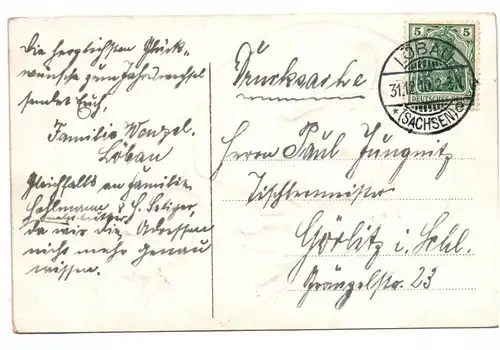 Die herzlichsten Glück-
wünsche zum Jahreswechsel
sendet Euch,
Familie Wenzel.
Löbau
Gleichfalls an Familie
& H. Seliger,
da wir die Adressen
nicht mehr genau
wissen.
Drucksache
5 5
DEUTSCHES
LÖBAU
31.12.10.2-3N
(SACHSEN)
Herrn Paul Jungnitz
Tischlermeister
Görlitz i. Schl.
Prängelstr. 23